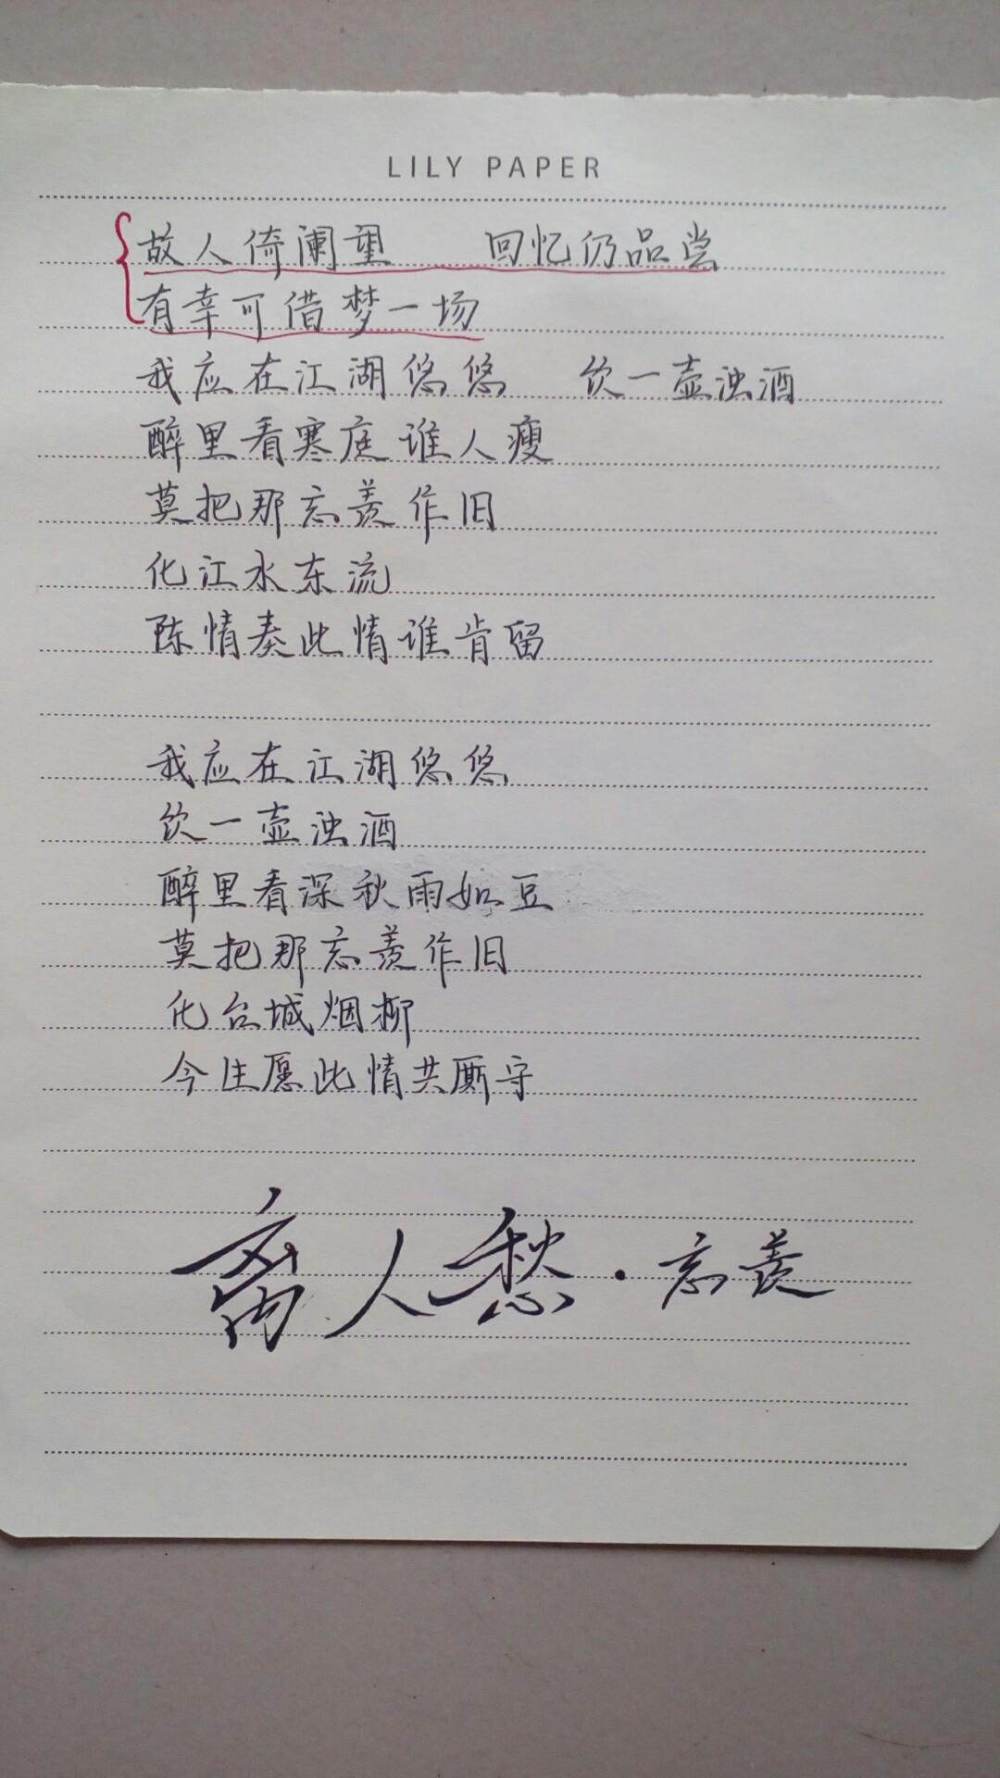 LILY PAPER
故人倚阑望 回忆仍品尝
有幸可借梦一场
我应在江湖悠悠 饮一壶浊酒
醉里看寒庭谁人瘦
莫把那忘羡作旧
化江水东流
陈情奏此情谁肯留
我应在江湖悠悠
饮一壶浊酒
醉里看深秋雨如豆
莫把那忘羡作旧
化台城烟柳
今生愿此情共厮守
离人愁·忘羡